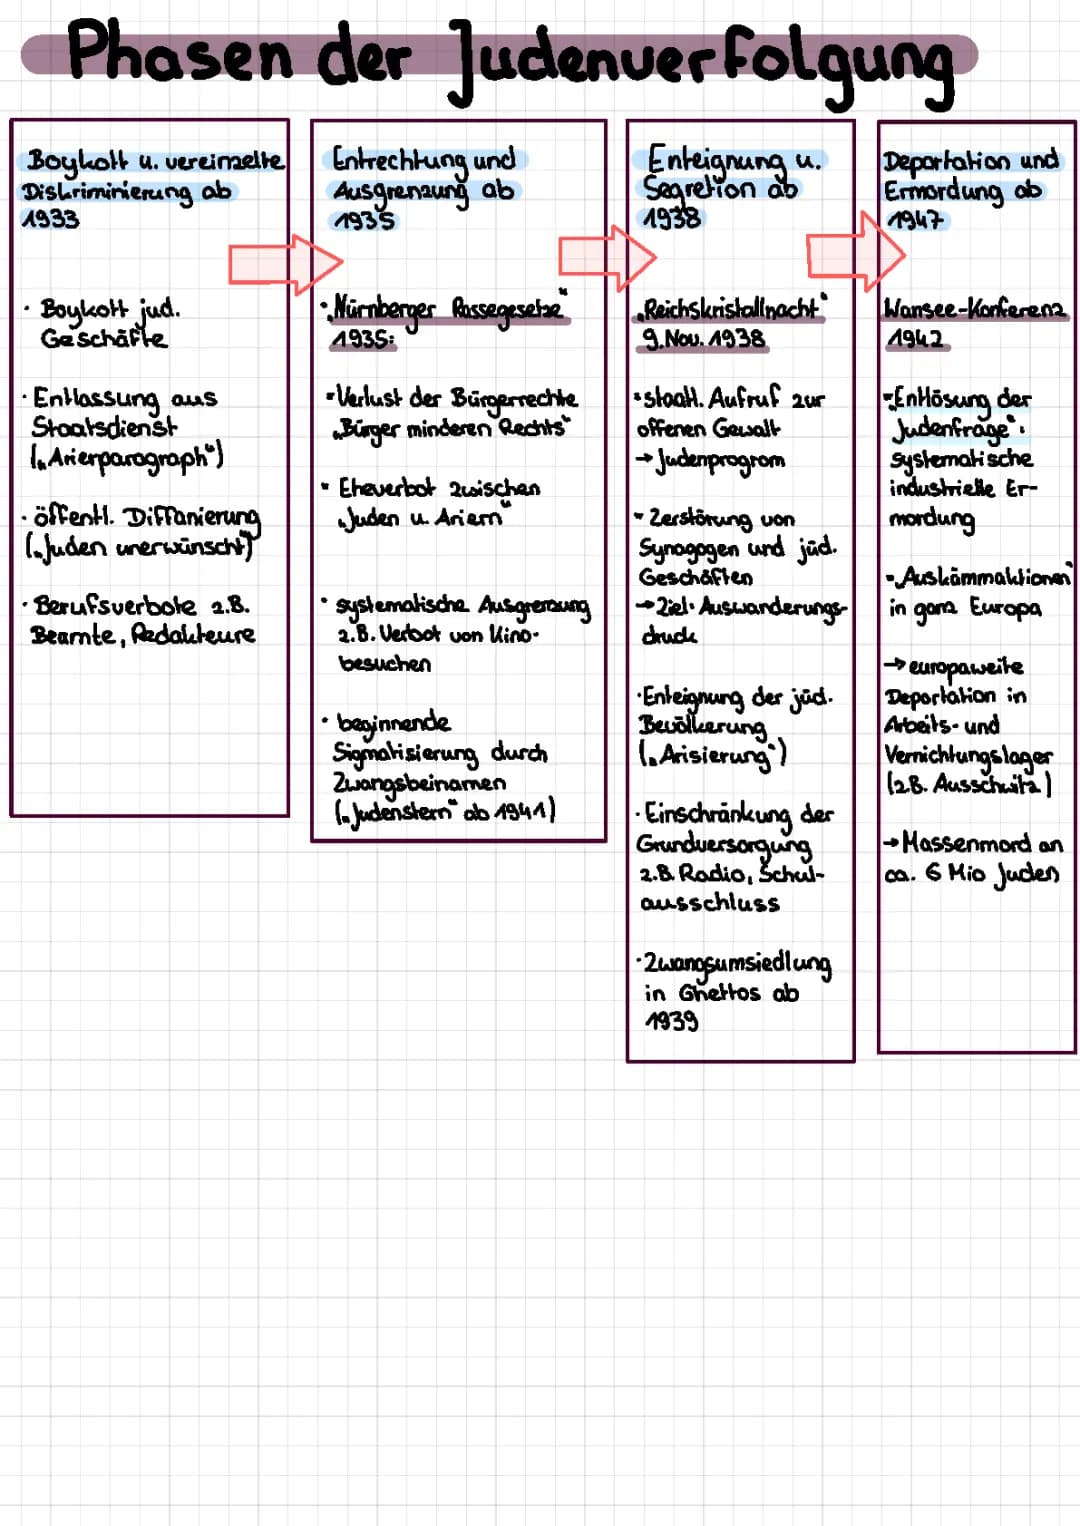 Phasen der Judenverfolgung
Boykott u. vereinzelte
Diskriminierung ab
1933
· Boykott jüd.
Geschäfte
· Entlassung aus
Staatsdienst
(„Arierparagraph")
· öffentl. Diffanierung
(„Juden unerwünscht")
· Berufsverbote z.B.
Beamte, Redakteure
Entrechtung und
Ausgrenzung ab
1935
· „Nürnberger Rassegesetze"
1935:
· Verlust der Bürgerrechte
„Bürger minderen Rechts"
· Eheverbot zwischen
„Juden u. Ariern"
· systematische Ausgrenzung
z.B. Verbot von Kino-
besuchen
· beginnende
Sigmatisierung durch
Zwangsbeinamen
(„Judenstern" ab 1941)
Enteignung u.
Segretion ab
1938
„Reichskristallnacht"
9. Nov. 1938
· staatl. Aufruf zur
offenen Gewalt
→ Judenprogrom
· Zerstörung von
Synagogen und jüd.
Geschäften
→ Ziel: Auswanderungs-
druck
· Enteignung der jüd.
Bevölkerung
(„Arisierung")
· Einschränkung der
Grundversorgung
z.B. Radio, Schul-
ausschluss
· Zwangsumsiedlung
in Ghettos ab
1939
Deportation und
Ermordung ab
1947
Wansee-Konferenz
1942
· „Entlösung der
Judenfrage":
systematische
industrielle Er-
mordung
· „Auskämmaktionen"
in ganz Europa
→ europaweite
Deportation in
Arbeits- und
Vernichtungslager
(z.B. Ausschwitz)
→ Massenmord an
ca. 6 Mio Juden